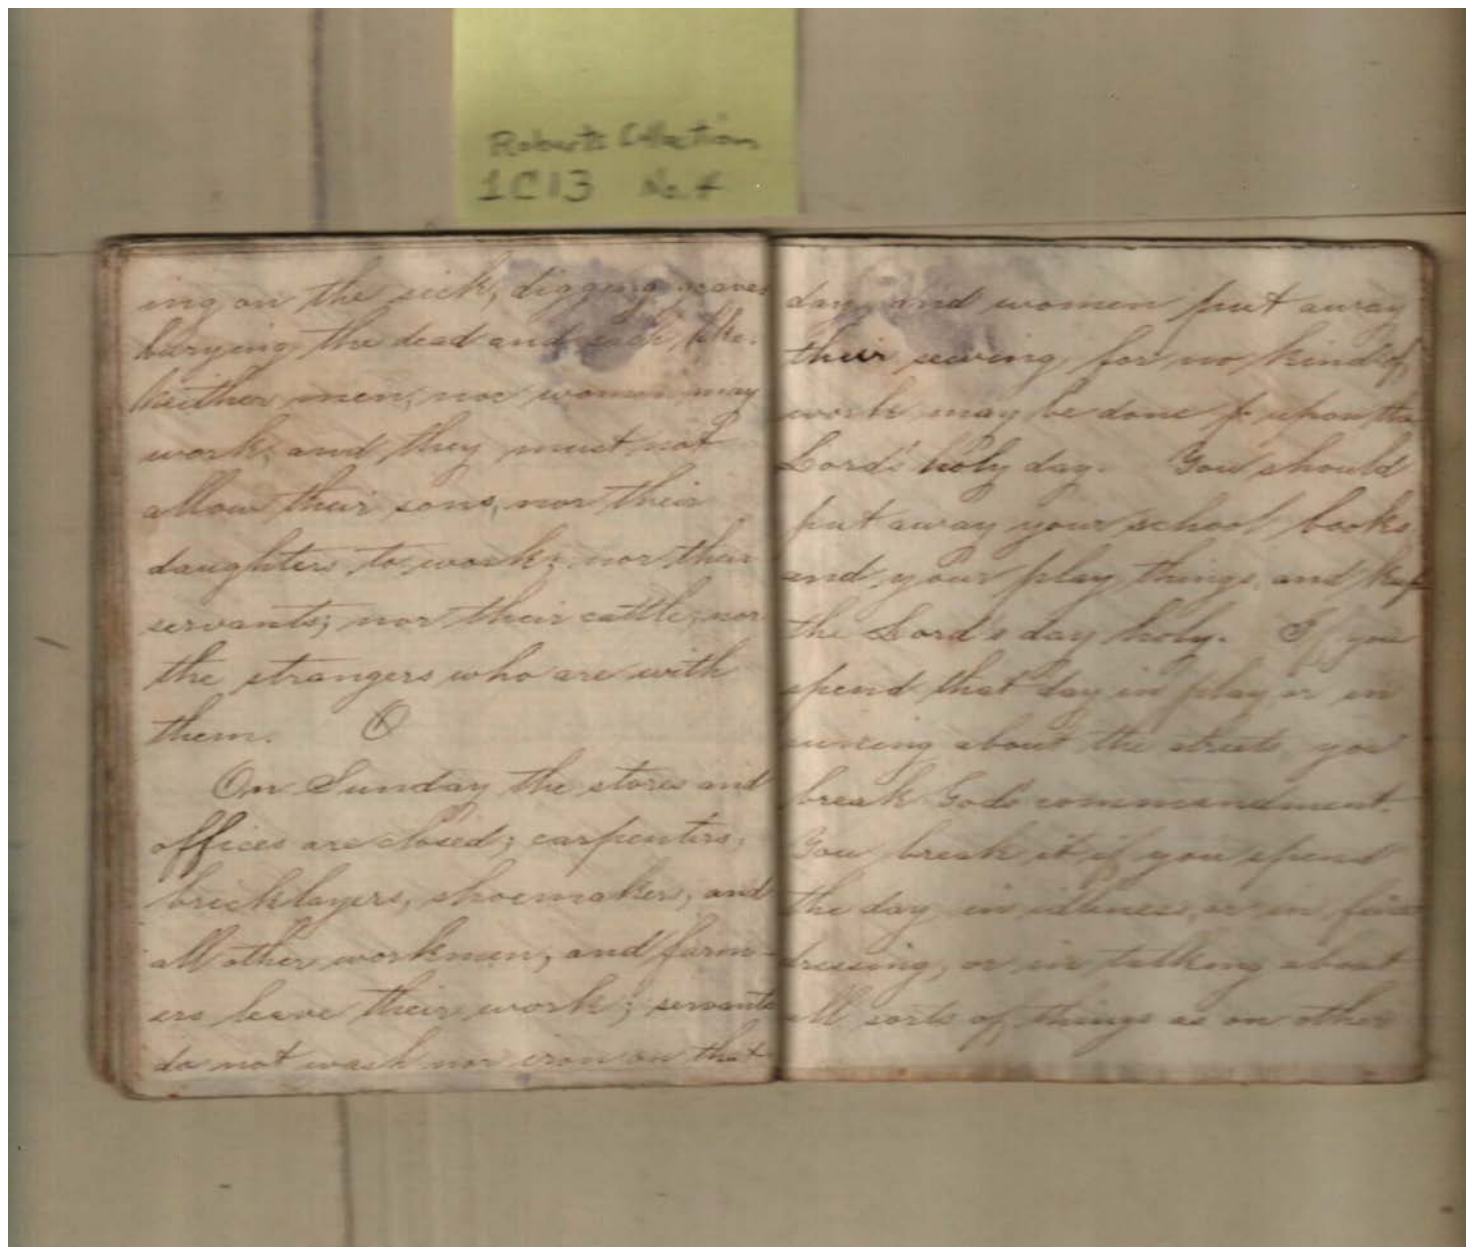 Roberts Collection
1C13 No. 4
ing on the sick, digging graves
burying the dead and such like.
Neither men, nor women may
work; and they must not
allow their sons, nor their
daughters to work; nor their
servants; nor their cattle; nor
the strangers who are with
them.
On Sunday the stores and
offices are closed; carpenters,
bricklayers, shoemakers, and
all other workmen, and farm-
ers leave their work; servants
do not wash nor iron on that
day, and women put away
their sewing, for no kind of
work may be done upon the
Lord's holy day. You should
put away your school books
and your play things, and keep
the Lord's day holy. If you
spend that day in play or in
running about the streets, you
break God's commandment.
You break it if you spend
the day in idleness, or in fine
dressing, or in talking about
all sorts of things as on other